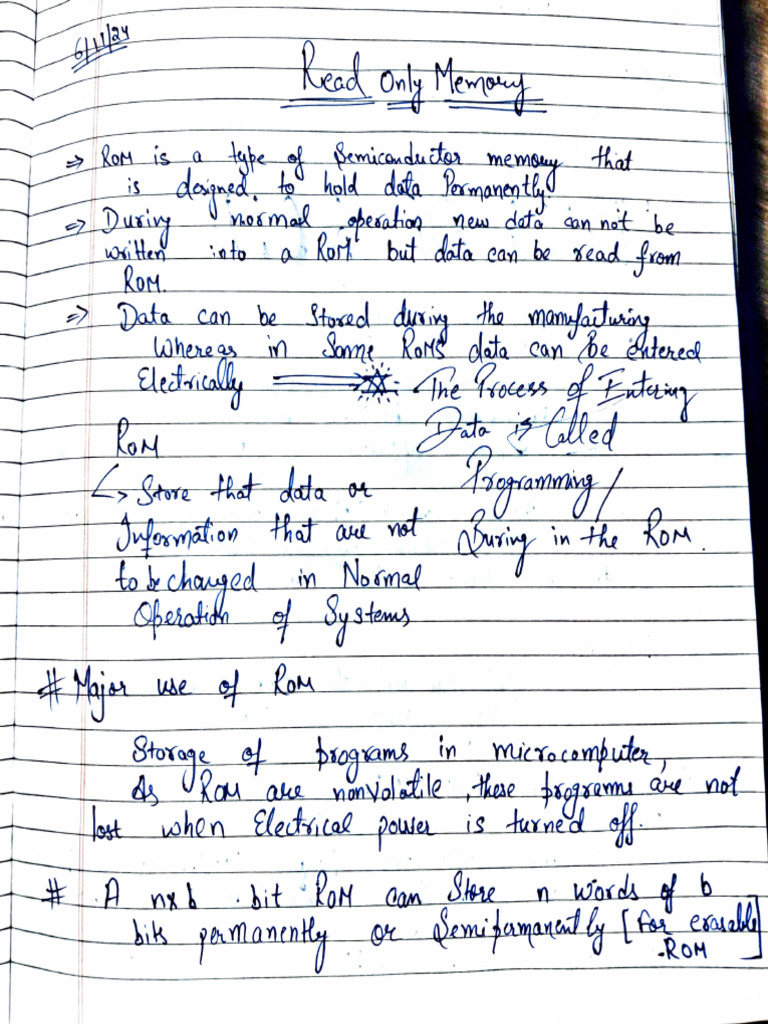 6/11/24
Read Only Memory
⇒ ROM is a type of Semiconductor memory that
is designed to hold data Permanently.
⇒ During normal operation new data can not be
written into a ROM but data can be read from
ROM.
⇒ Data can be Stored during the manufacturing
Whereas in Some ROMS data can be entered
Electrically
The Process of Entering
Data is Called
Programming /
Buring in the ROM.
ROM
↳ Store that data or
Information that are not
to be changed in Normal
Operation of Systems
# Major use of ROM
Storage of programs in microcomputer,
As ROM are nonvolatile, these programs are not
lost when Electrical power is turned off.
# A nxb bit ROM can Store n words of b
bits permanently or Semipermanently [For erasable]
-ROM